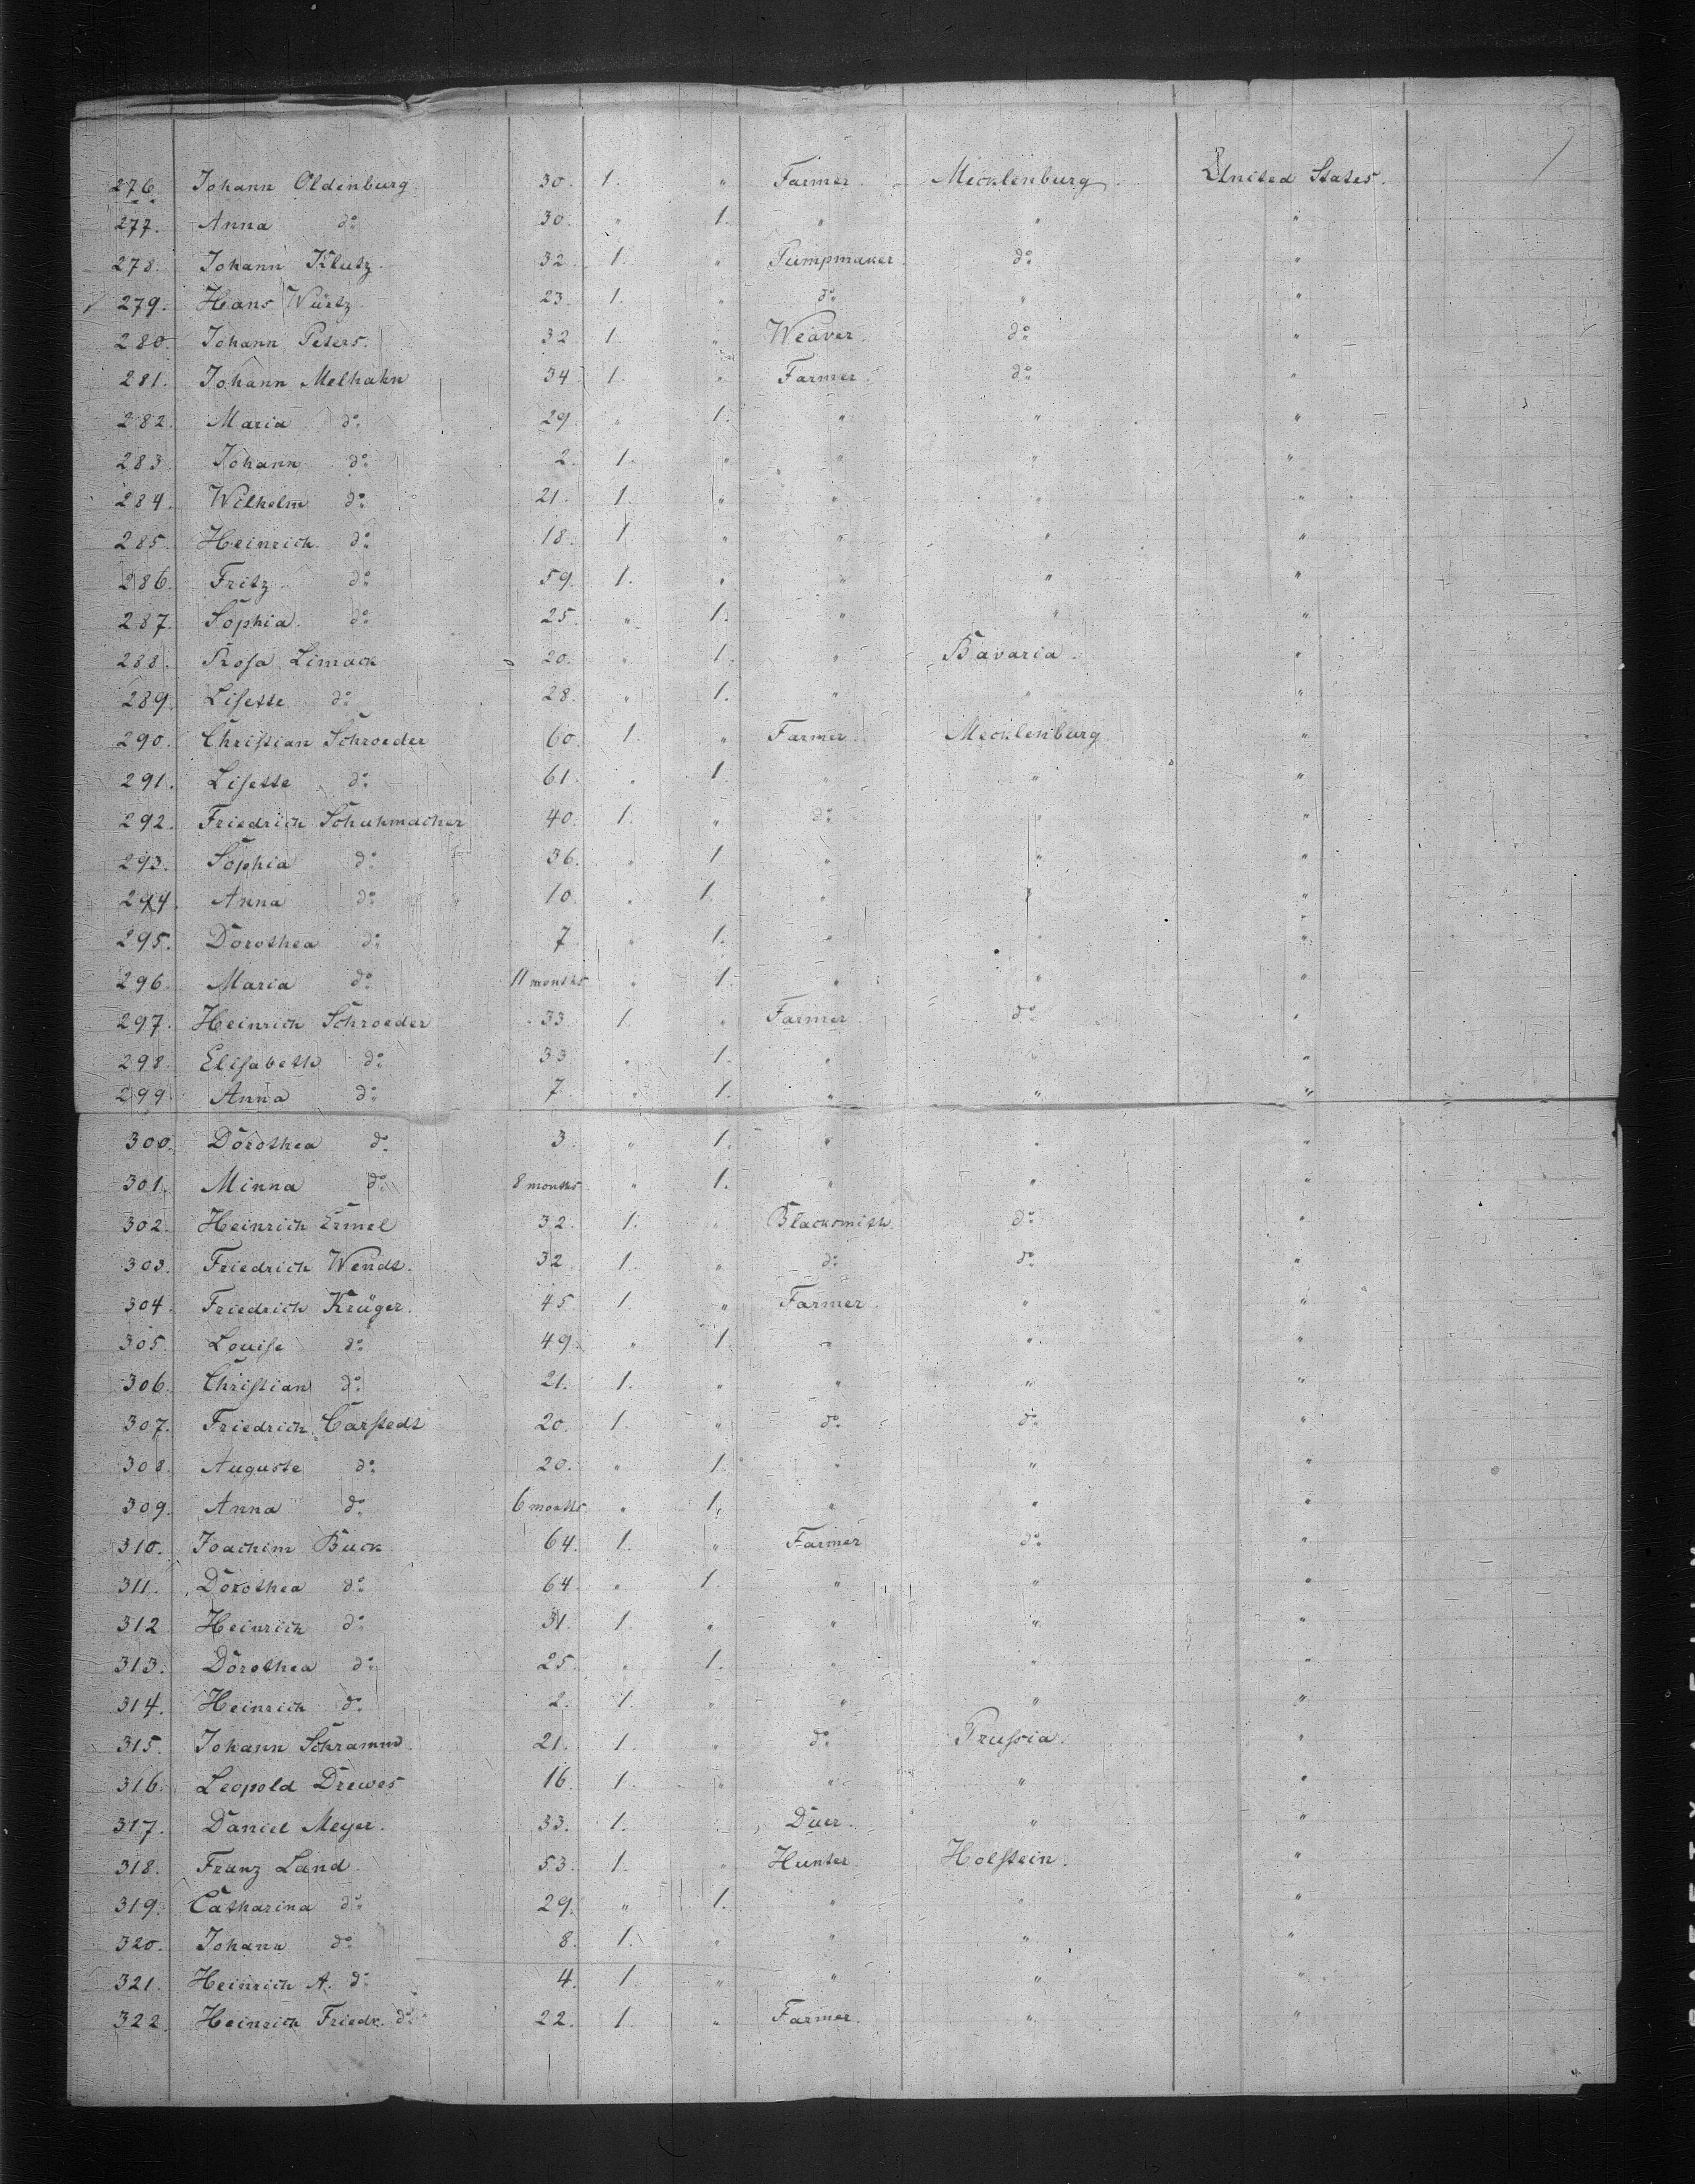 276. Johann Oldenburg 30. 1. " Farmer. Mecklenburg. United States.
277. Anna do 30. " 1. " " "
278. Johann Klutz. 32. 1. " Pumpmaker. do "
279. Hans Würtz. 23. 1. " do " "
280. Johann Peters. 32. 1. " Weaver. do "
281. Johann Melhahn 34 1. " Farmer. do "
282. Maria do 29. " 1. " " "
283. Johann do 2. 1. " " " "
284. Wilhelm do 21. 1. " " " "
285. Heinrich do 18. 1 " " " "
286. Fritz do 59. 1. " " " "
287. Sophia. do 25. " 1. " " "
288. Rosa Limack 20. " 1. " Bavaria. "
289. Lisette do 28. " 1. " " "
290. Christian Schroeder 60. 1. " Farmer. Mecklenburg. "
291. Lisette do 61. " 1 " " "
292. Friedrich Schuhmacher 40. 1. " do " "
293. Sophia do 36. " 1 " " "
294. Anna do 10. " 1. " " "
295. Dorothea do 7 " 1. " " "
296. Maria do 11 months " 1. " " "
297. Heinrich Schroeder 33 1. " Farmer do "
298. Elisabeth do 33 " 1. " " "
299. Anna do 7 " 1. " " "
300. Dorothea do 3. " 1. " " "
301. Minna do 8 months " 1. " " "
302. Heinrich Ermel 32. 1. " Blacksmith. do "
303. Friedrich Wendt. 32 1. " do do "
304. Friedrich Krüger. 45. 1. " Farmer. " "
305. Louise do 49. " 1. " " "
306. Christian do 21. 1. " " " "
307. Friedrich Carstedt 20. 1. " do do "
308. Auguste do 20. " 1. " " "
309. Anna do 6 months " 1. " " "
310. Joachim Buck 64. 1. " Farmer do "
311. Dorothea do 64. " 1. " " "
312 Heinrich do 31. 1. " " " "
313. Dorothea do 25. " 1. " " "
314. Heinrich do 2. 1. " " " "
315. Johann Schramm. 21. 1. " do Prussia. "
316. Leopold Drewes 16. 1. " " " "
317. Daniel Meyer. 33. 1. Duer. " "
318. Franz Land. 53. 1. " Hunter. Holstein. "
319. Catharina do 29. " 1. " " "
320. Johann do 8. 1. " " " "
321. Heinrich A. do 4. 1. " " " "
322. Heinrich Friedr. do 22. 1. " Farmer. " "